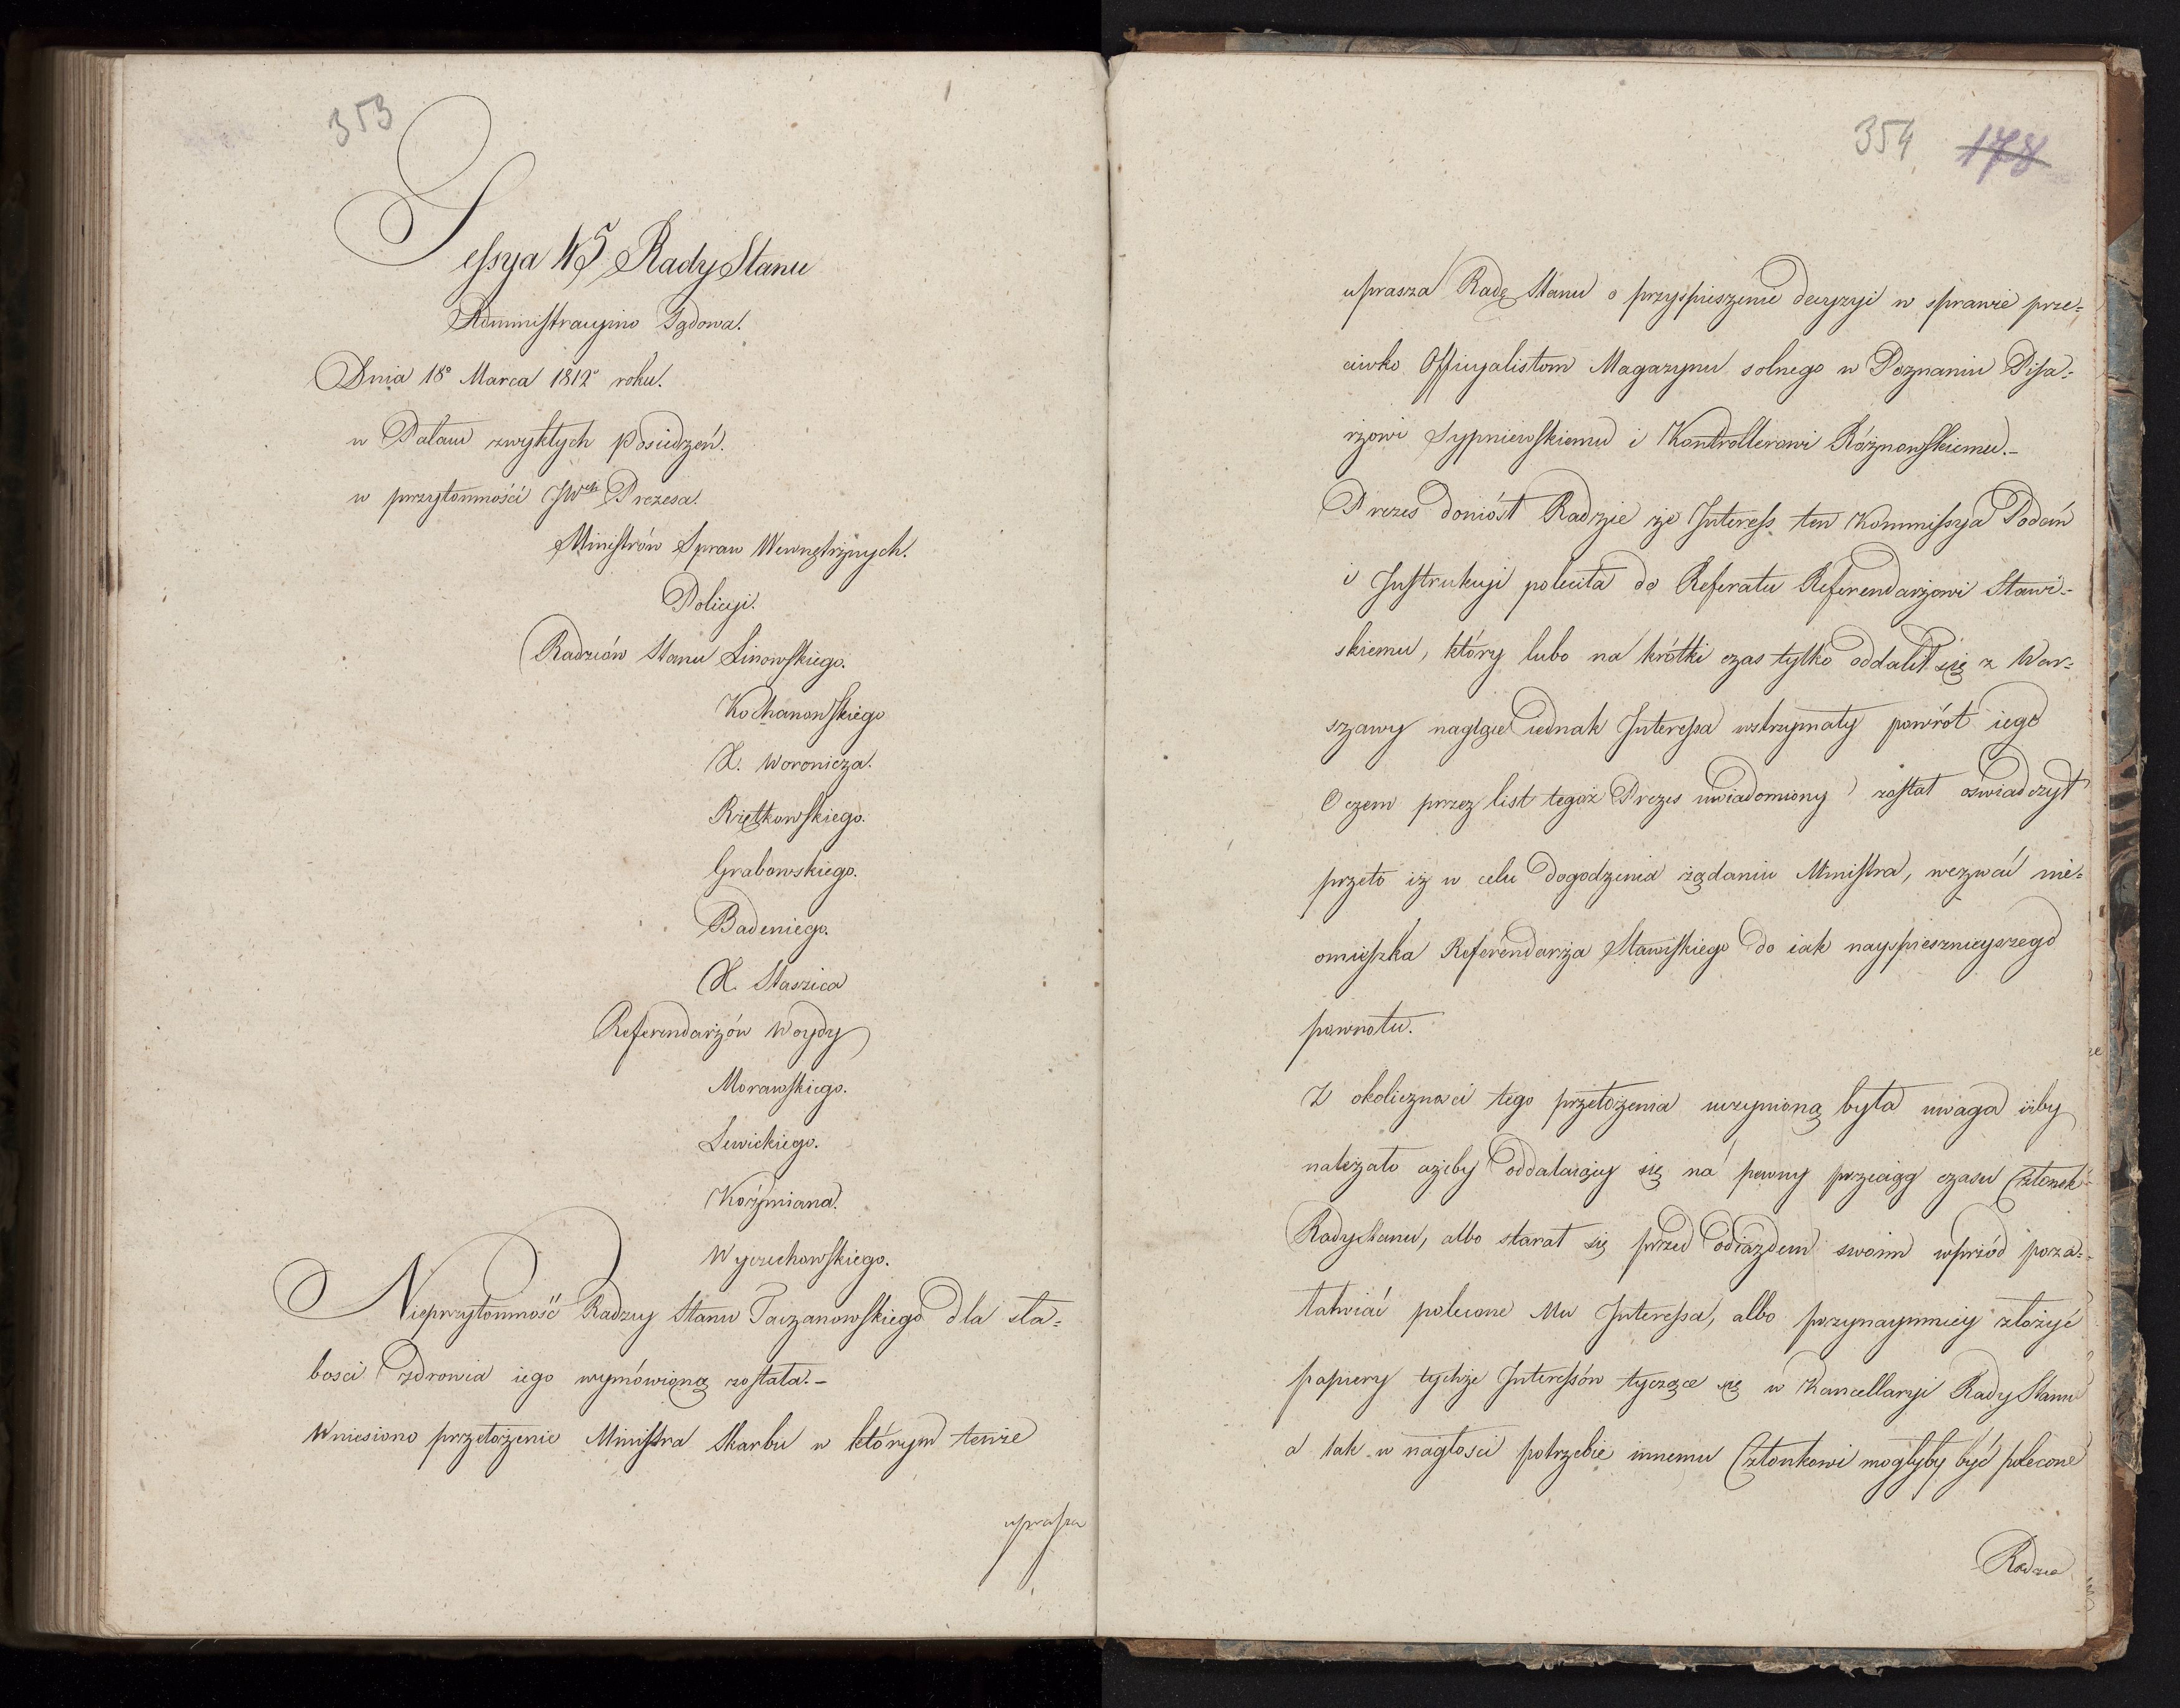 353
Sessya 45 Rady Stanu
Administracyino Sądowa.
Dnia 18° Marca 1812° roku.
w Pałacu zwykłych posiedzeń.
w przytomności JWch Prezesa.
Ministrów Spraw Wewnętrznych.
Policyi.
Radzców Stanu Linowskiego.
Kochanowskiego
X. Woronicza.
Rzętkowskiego.
Grabowskiego.
Badeniego.
X. Staszica
Referendarzów Woydy
Morawskiego.
Lewickiego.
Koźmiana.
Wyczechowskiego.
Nieprzytomność Radzcy Stanu Taczanowskiego dla sła=
bosci zdrowia iego wymówioną została.-
Wniesiono przełożenie Ministra Skarbu w którym tenże
uprasza
354 178
uprasza Radę Stanu o przyspieszenie decyzyi w sprawie prze=
ciwko Officyalistom Magazynu solnego w Poznaniu Pisa=
rzowi Sypniewskiemu i Kontrollerowi Różnowskiemu.-
Prezes doniósł Radzie że Interess ten Kommissya Podań
i Instrukcyi poleciła do Referatu Referendarzowi Stawi-
skiemu, który lubo na krótki czas tylko oddalił się z War=
szawy nagłe iednak Interessa wstrzymały powrót iego
O czem przez list tegoż Prezes uwiadomiony został oświadczył
przeto iż w celu dogodzenia żądaniu Ministra, wezwać nie=
omieszka Referendarza Stawiskiego do iak nayspiesznieyszego
powrotu.
Z okoliczności tego przełożenia uczynioną była uwaga iżby
należało ażeby oddalaiący się na pewny przeciąg czasu Członek
Rady Stanu, albo starał się przed odiazdem swoim wprzód poza=
łatwiać polecone Mu Interessa, albo przynaymniey złożyć
papiery tychże Interessów tyczące się w Kancellaryi Rady Stanu
a tak w nagłości potrzebie innemu Członkowi mogłyby być polecone
Radzca